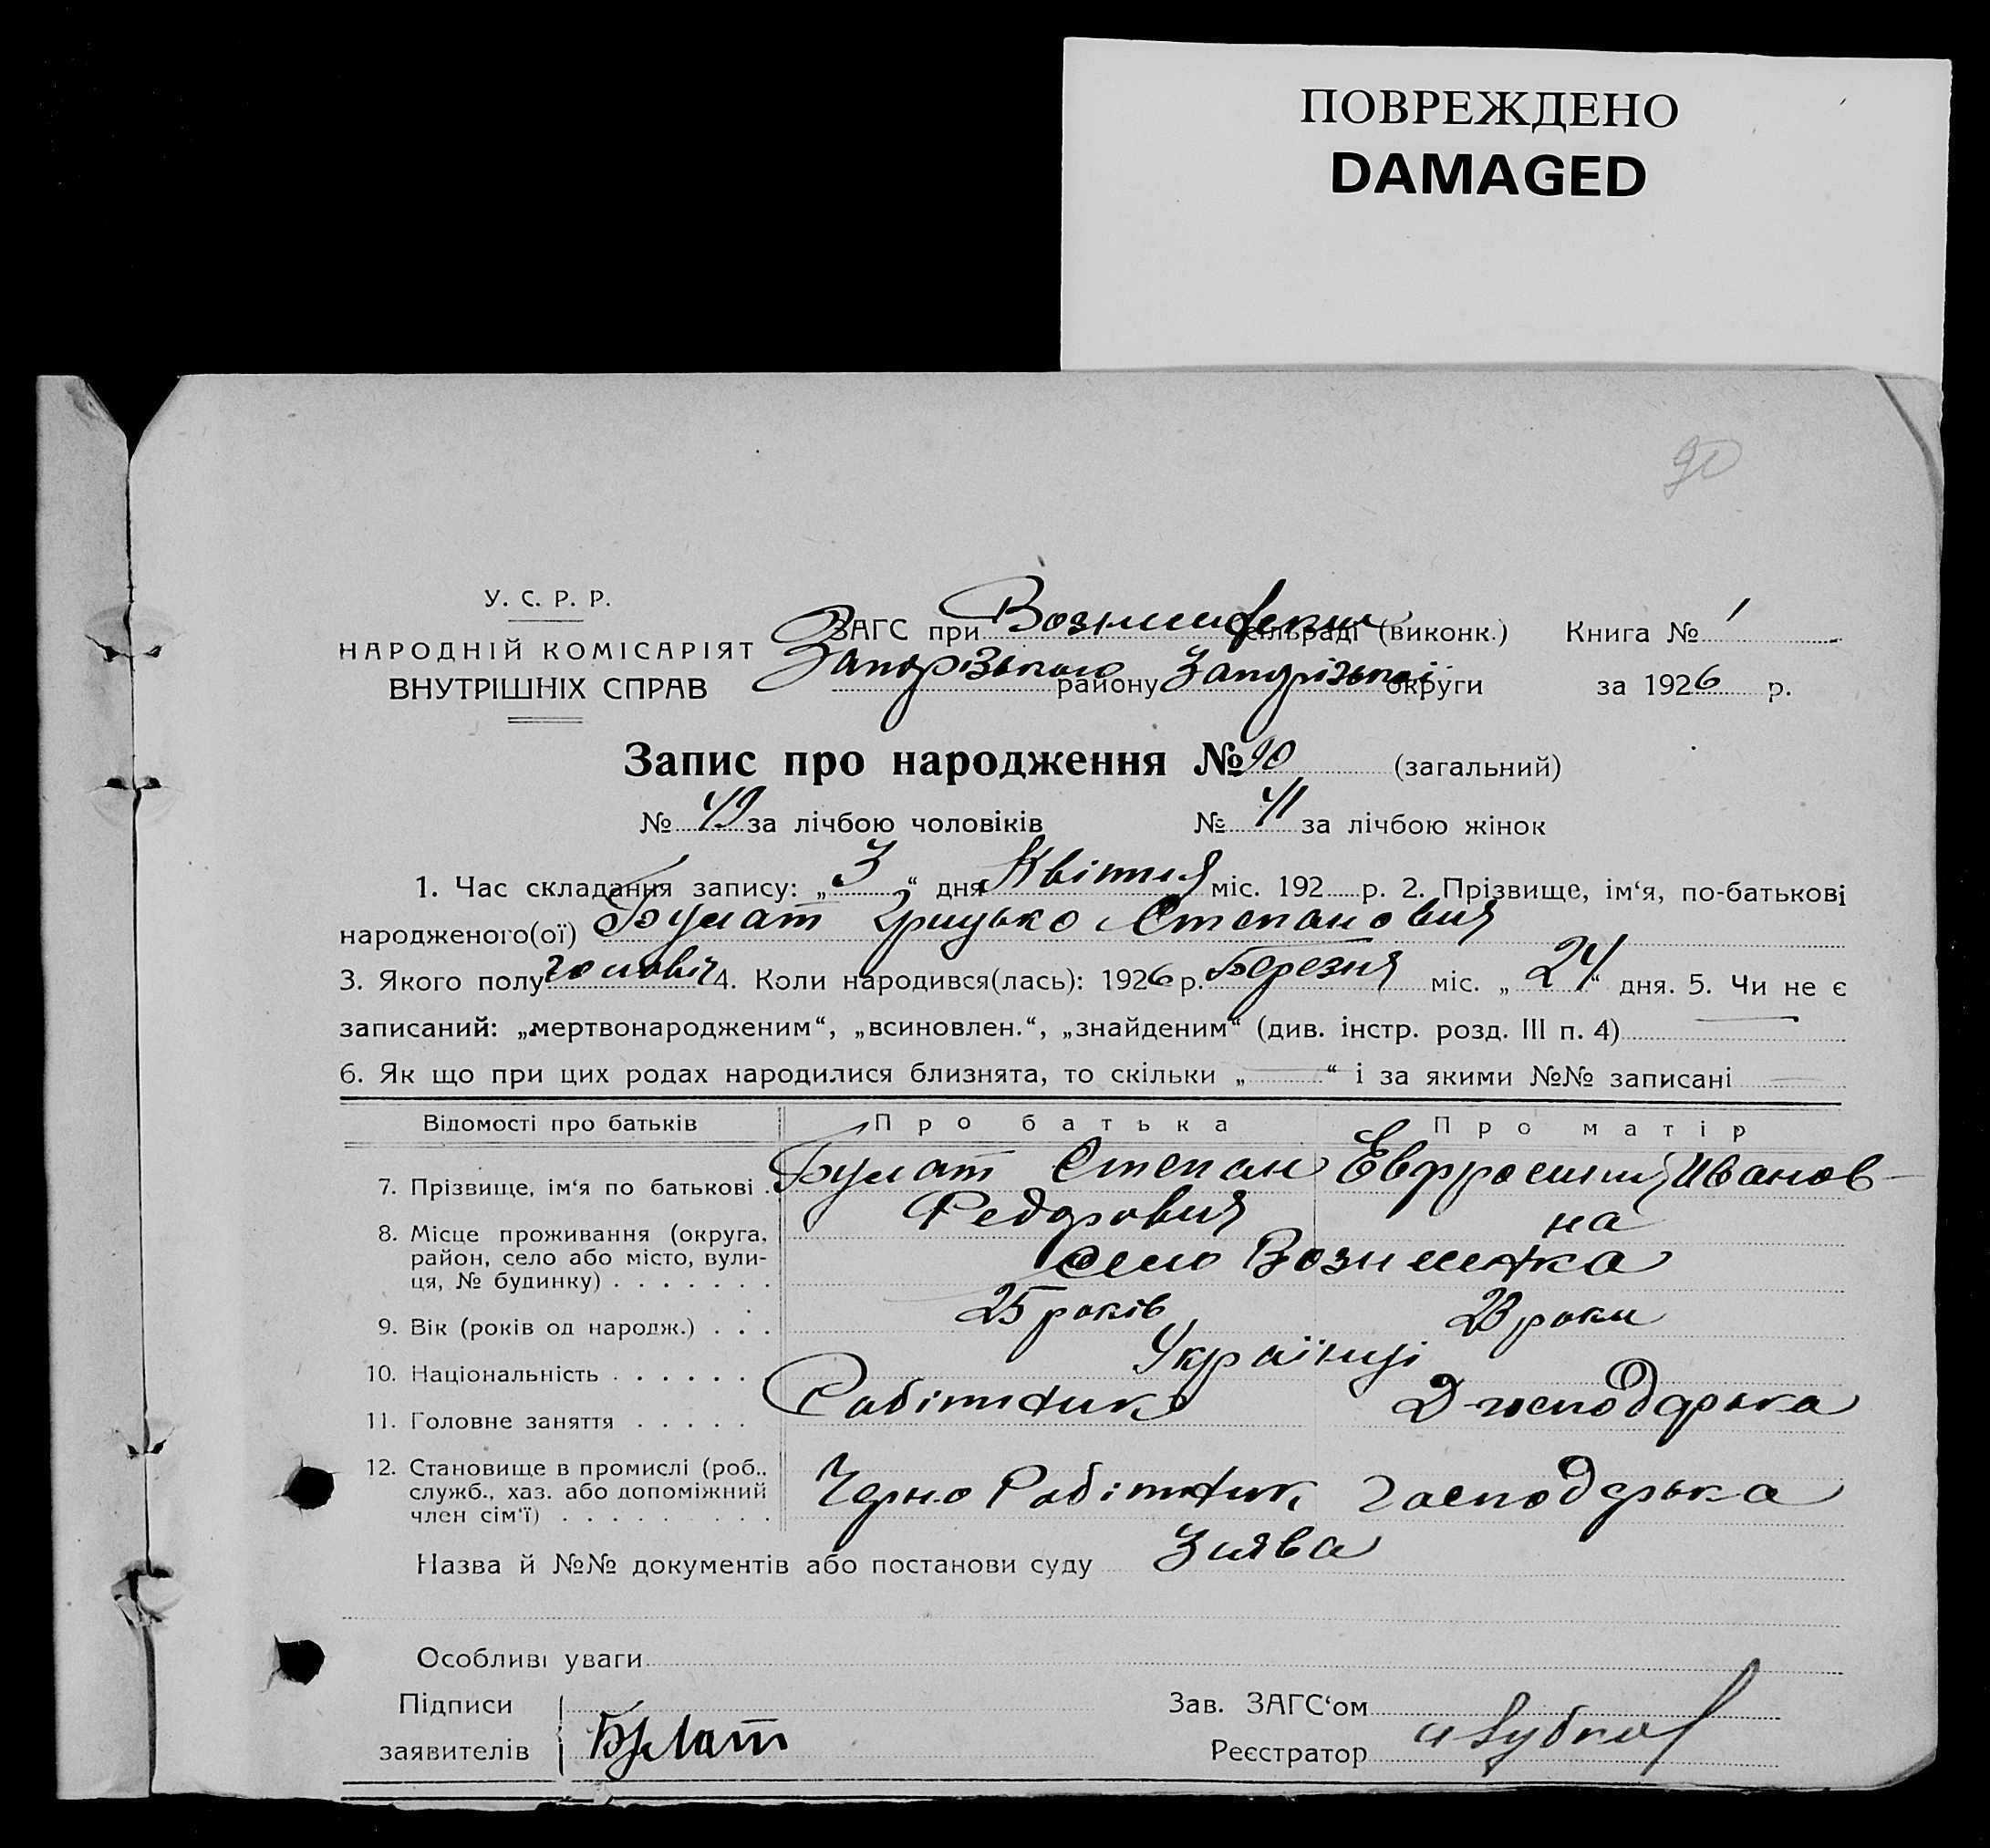 ПОВРЕЖДЕНО
DAMAGED
90
У. С. Р. Р.
НАРОДНІЙ КОМІСАРІЯТ
ВНУТРІШНІХ СПРАВ
ЗАГС при сільраді (виконк.) Книга № 1
Запорізького району Запорізької округи за 1926 р.
Запис про народження № 90 (загальний)
№ 49 за лічбою чоловіків № 41 за лічбою жінок
1. Час складання запису: „ 3 “ дня Квітня міс. 192 р. 2. Прізвище, ім‘я, по-батькові
народженого(ої) Булат Грицько Степанович
3. Якого полу чоловіч 4. Коли народився(лась): 1926 р. Березня міс. „ 24 “ дня. 5. Чи не є
записаний: „мертвонародженим“, „всиновлен.“, „знайденим“ (див. інстр. розд. III п. 4) —
6. Як що при цих родах народилися близнята, то скільки „ — “ і за якими №№ записані —
Відомості про батьків Про батька Про матір
7. Прізвище, ім‘я по батькові . Булат Степан Федорович Евфросиния Иванов-
на
8. Місце проживання (округа, район, село або місто, вули-
ця, № будинку) . . . . . . . село Вознесенка
9. Вік (років од народж.) . . . 25 років 23 роки
10. Національність . . . . . . Українці
11. Головне заняття . . . . . Робітник Д-господарька
12. Становище в промислі (роб.,
служб., хаз. або допоміжний
член сім‘ї) . . . . . . . . . Чорно Робітник господарька
Назва й №№ документів або постанови суду Зиява
Особливі уваги
Підписи Зав. ЗАГС‘ом
заявителів Булат Реєстратор